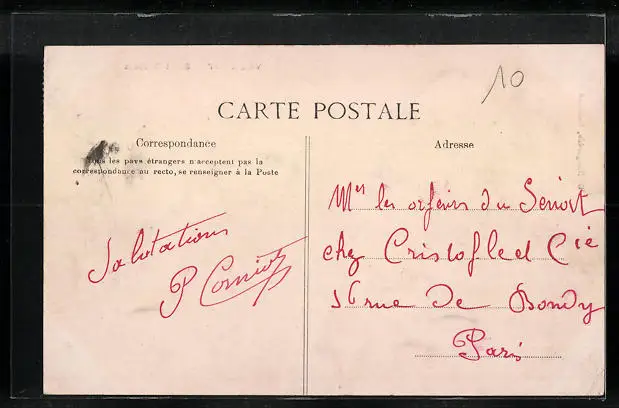 10
CARTE POSTALE
Correspondance
Tous les pays étrangers n'acceptent pas la
correspondance au recto, se renseigner à la Poste
Salutations
P Cornio
Adresse
Mrs les orfèvres du
chez Cristofle et Cie
56 rue De Bondy
Paris